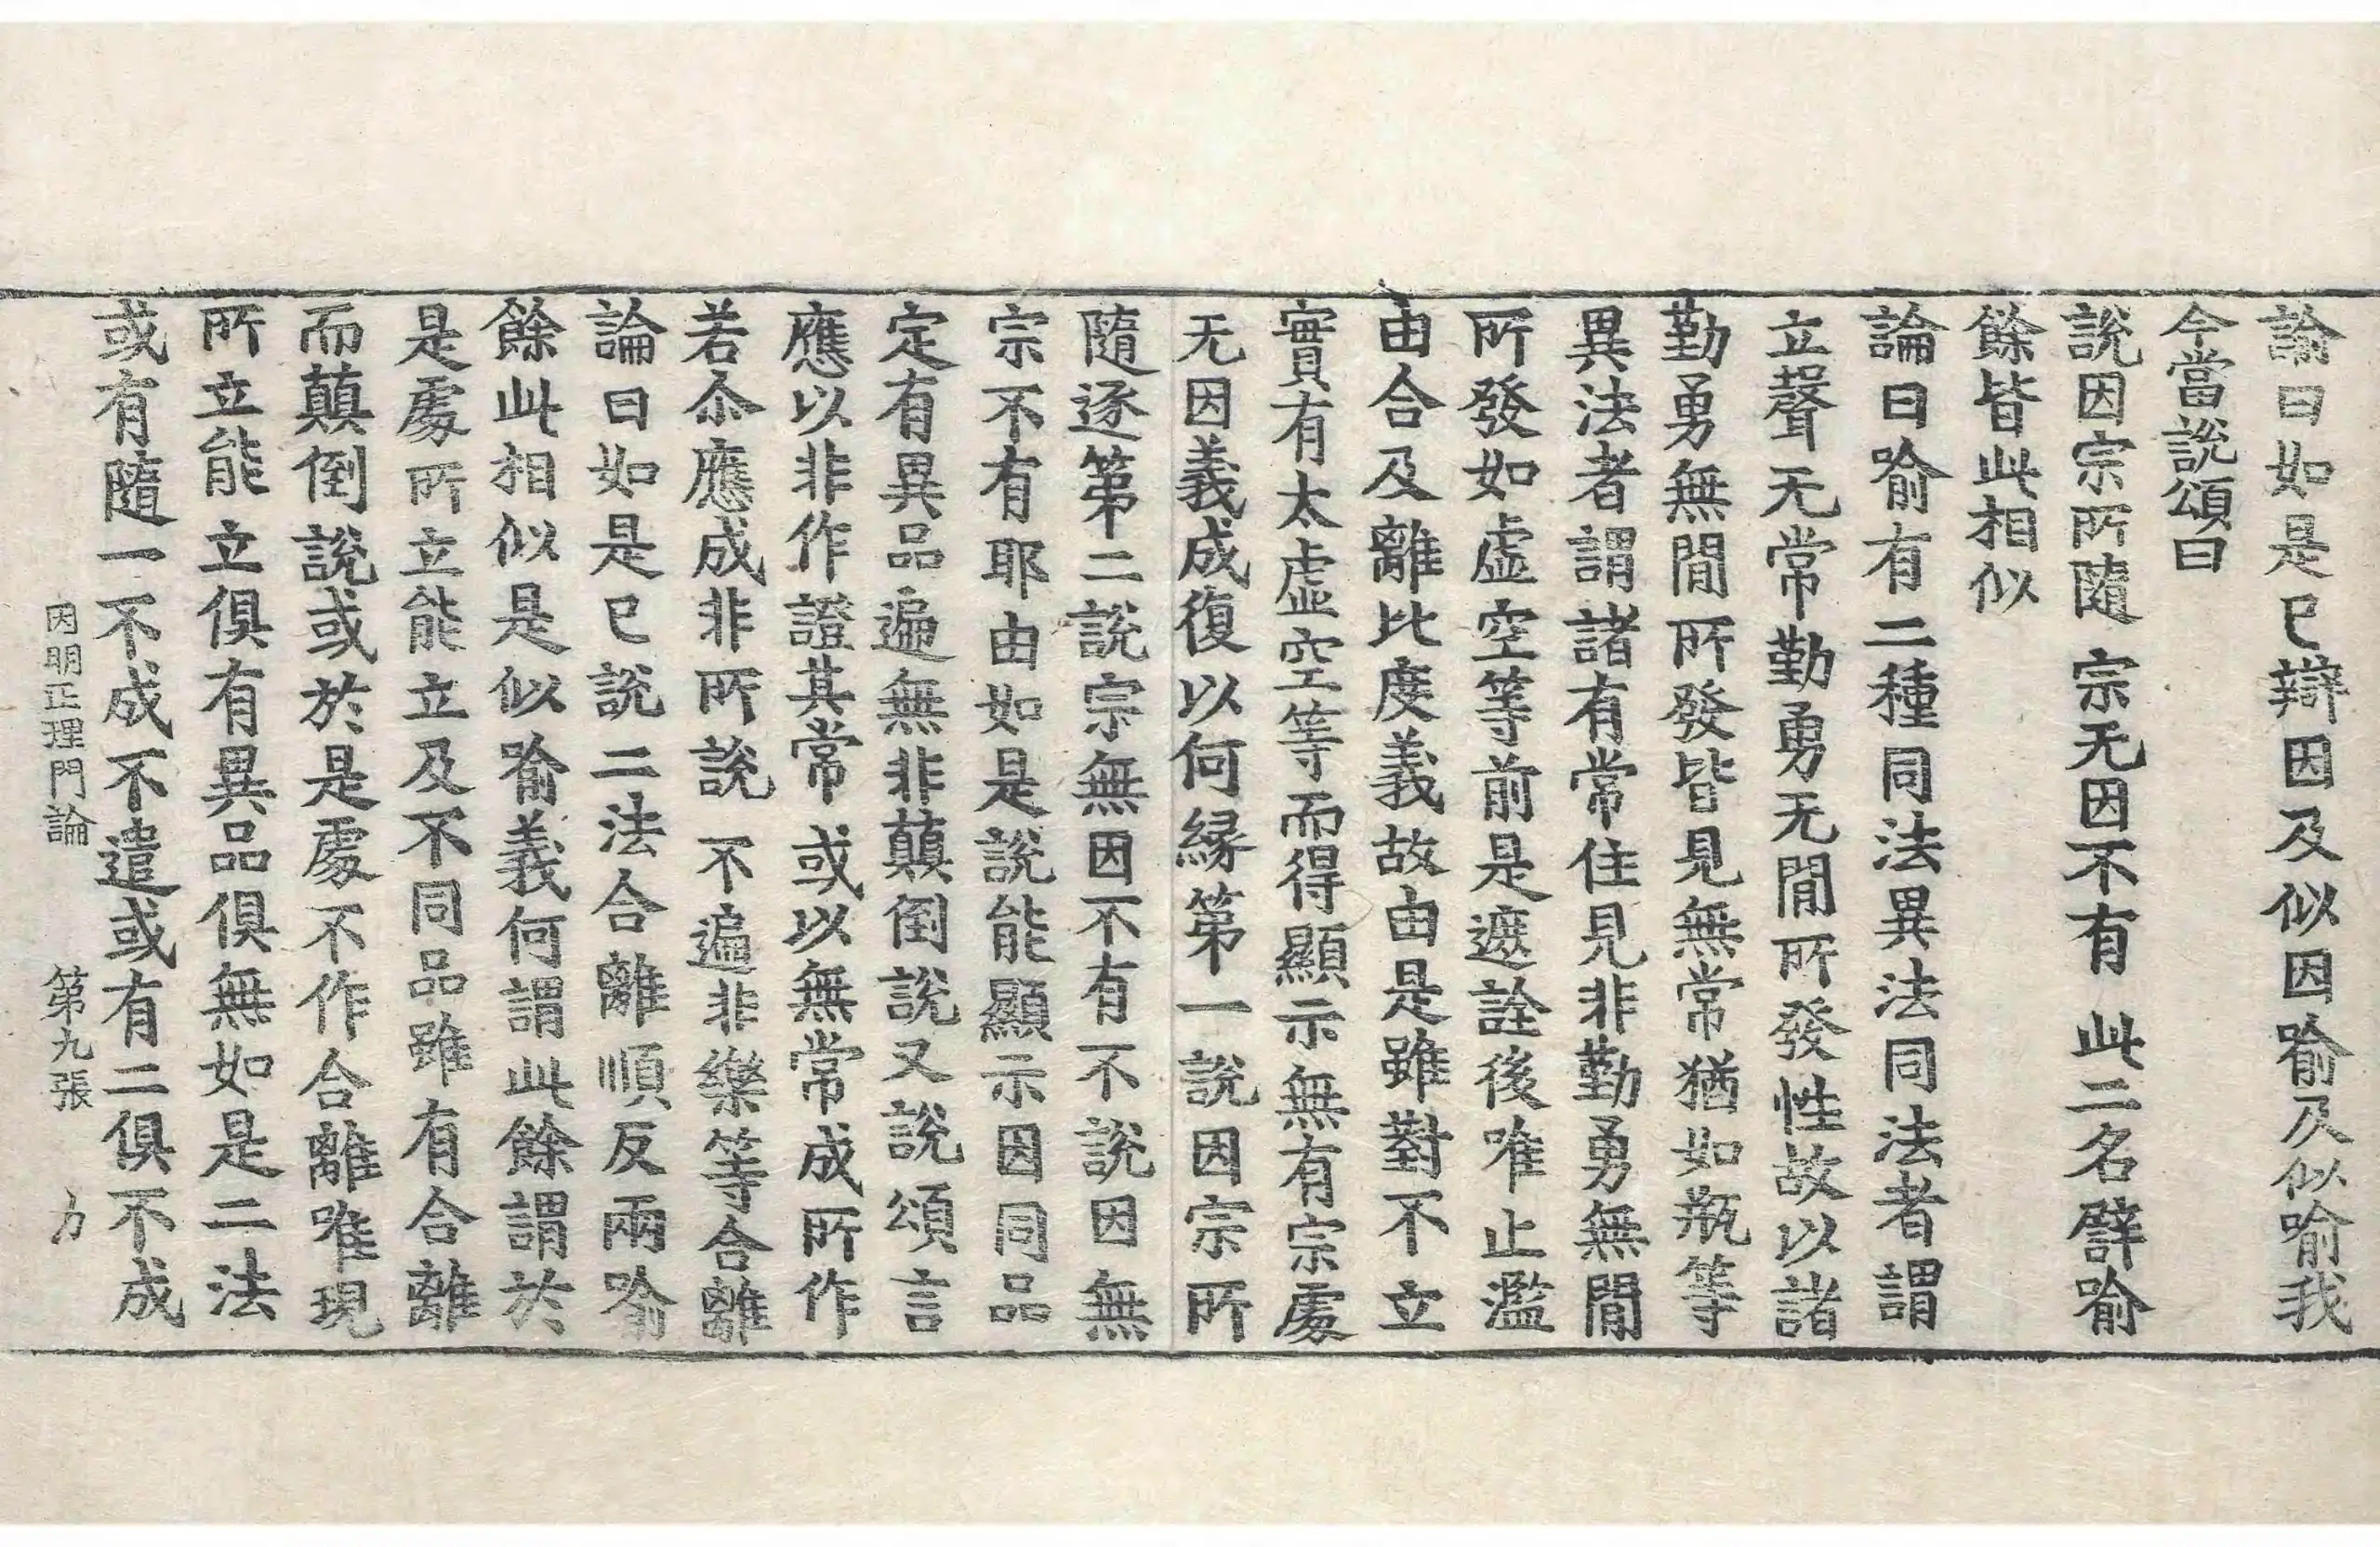 論曰如是已辯因及似因喻及似喻我
今當說頌曰
說因宗所隨 宗无因不有 此二名譬喻
餘皆此相似
論曰喻有二種同法異法同法者謂
立聲无常勤勇无閒所發性故以諸
勤勇無閒所發皆見無常猶如瓶等
異法者謂諸有常住見非勤勇無閒
所發如虛空等前是遮詮後唯止濫
由合及離比度義故由是雖對不立
實有太虛空等而得顯示無有宗處
无因義成復以何緣第一說因宗所
隨逐第二說宗無因不有不說因無
宗不有耶由如是說能顯示因同品
定有異品遍無非顛倒說又說頌言
應以非作證其常 或以無常成所作
若尒應成非所說 不遍非樂等合離
論曰如是已說二法合離順反兩喻
餘此相似是似喻義何謂此餘謂於
是處所立能立及不同品雖有合離
而顛倒說或於是處不作合離唯現
所立能立俱有異品俱無如是二法
或有隨一不成不遣或有二俱不成
因明正理門論 第九張 力